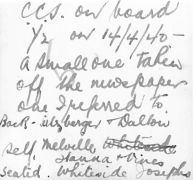 CCS. on board
1/2 on 14/4/40 -
a small one taken
off the newspaper
one I referred to
Back - itzberger & Dallow
self, Melville,
Hanna & Vines
seated. Whiteside Josephs